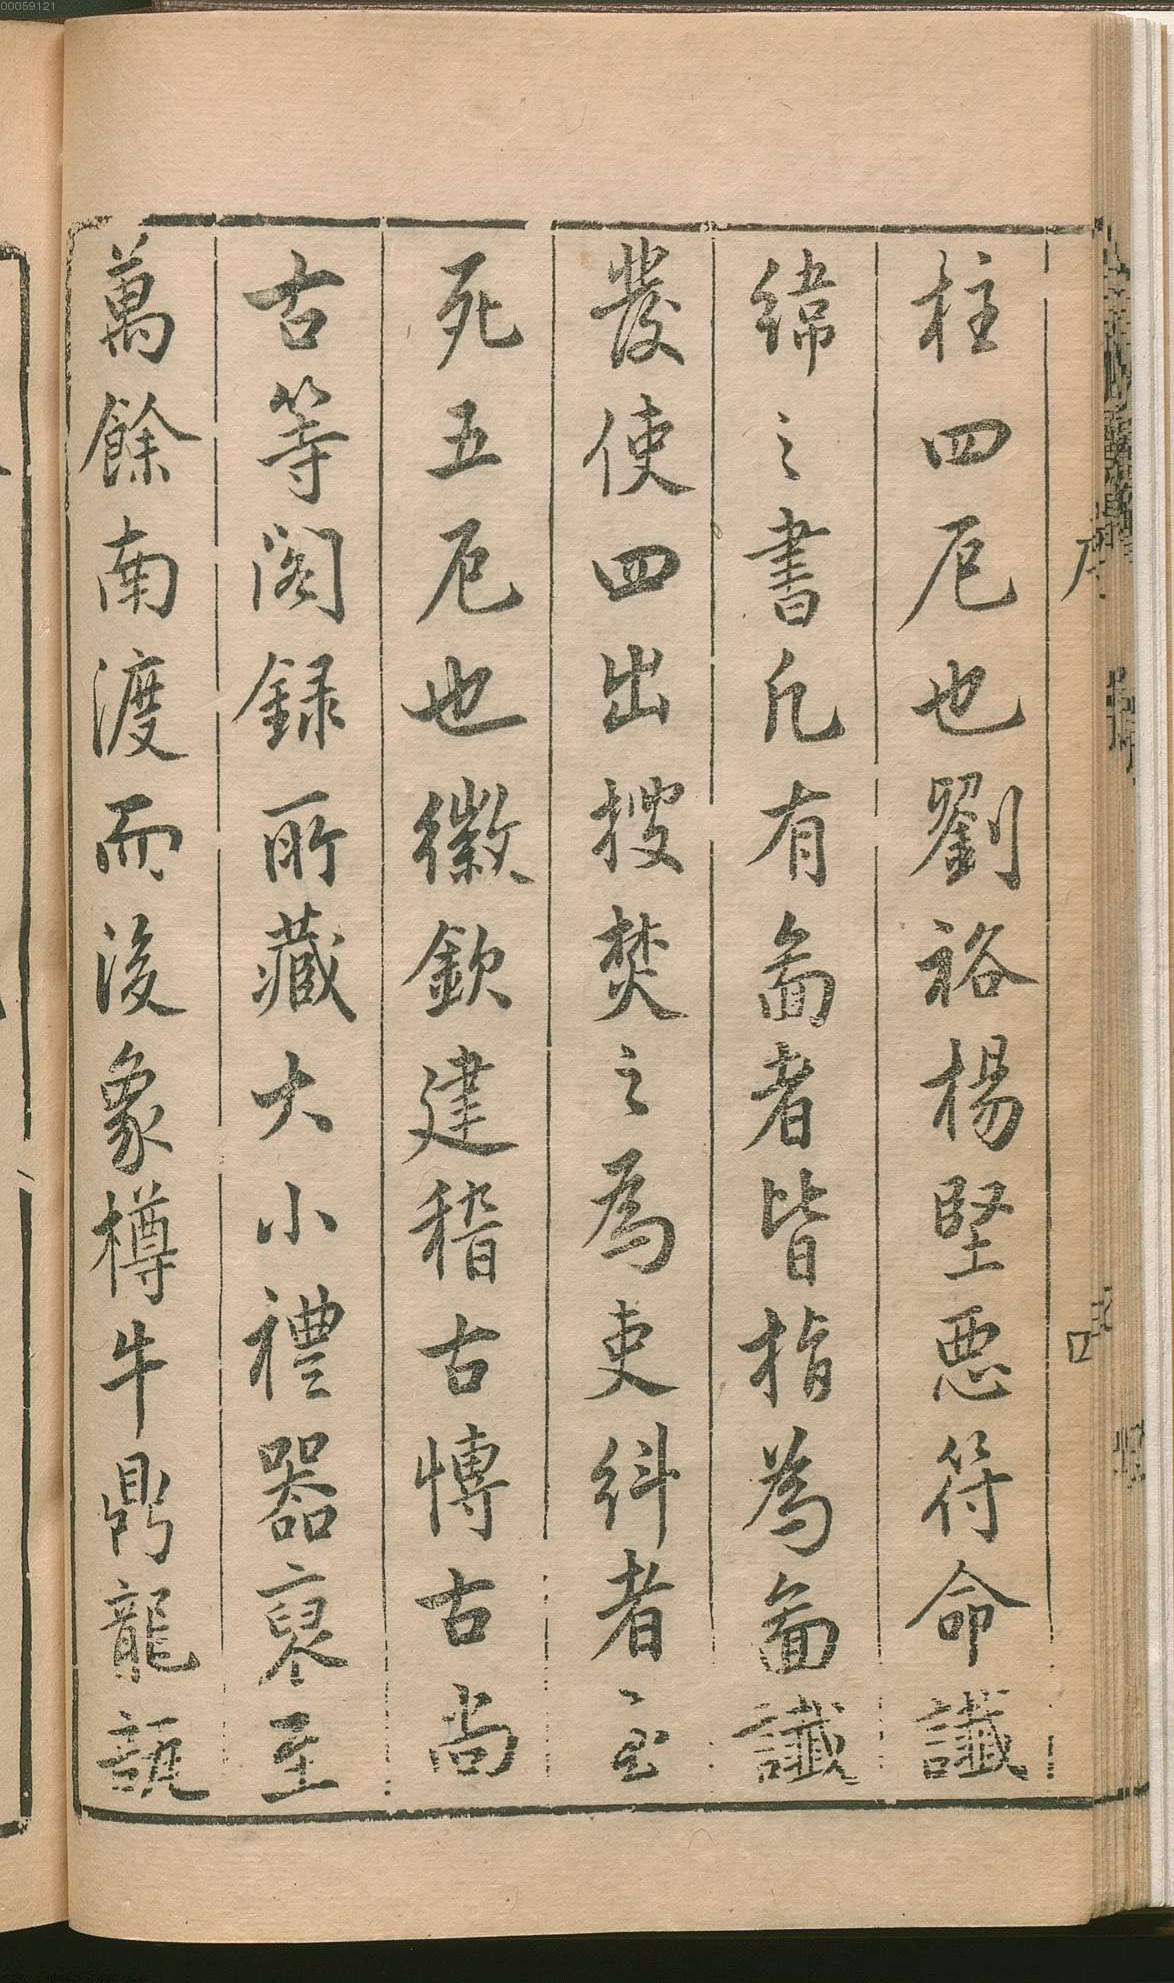 00059121
柱四厄也劉裕楊堅悪符命讖
緯之書凡有啚者皆指為啚讖
發使四出搜焚之為吏糾者至
死五厄也徽欽建稽古博古尚
古等閣録所藏大小禮器裒至
萬餘南渡而後象樽牛鼎龍瓿